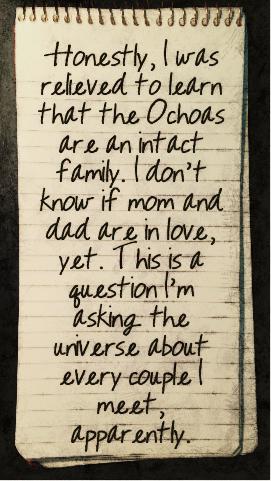 Honestly, I was
relieved to learn
that the Ochoas
are an intact
family. I don't
know if mom and
dad are in love,
yet. This is a
question I'm
asking the
universe about
every couple I
meet,
apparently.